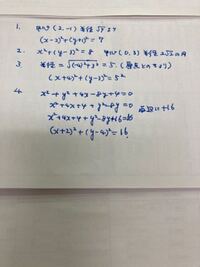 1. 中心 (2, -1) 半径 √7 より
(x-2)²+(y+1)² = 7
2. x²+(y-3)² = 8 中心 (0, 3) 半径 2√2 の円
3. 半径 = √(-4)²+3² = 5. (原点とのきょり)
(x+4)²+(y-3)² = 5²
4. x² + y² + 4x - 8y + 4 = 0
x² + 4x + 4 + y² - 8y = 0 両辺に+16
x² + 4x + 4 + y² - 8y + 16 = 16
(x+2)² + (y-4)² = 16